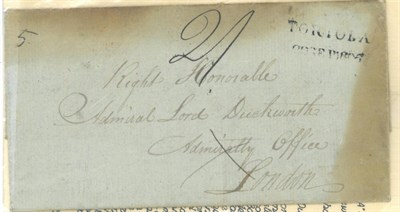 5
2/
TORTOLA
Right Honoralle
Admiral Lord Duckworth
Admiralty Office
London